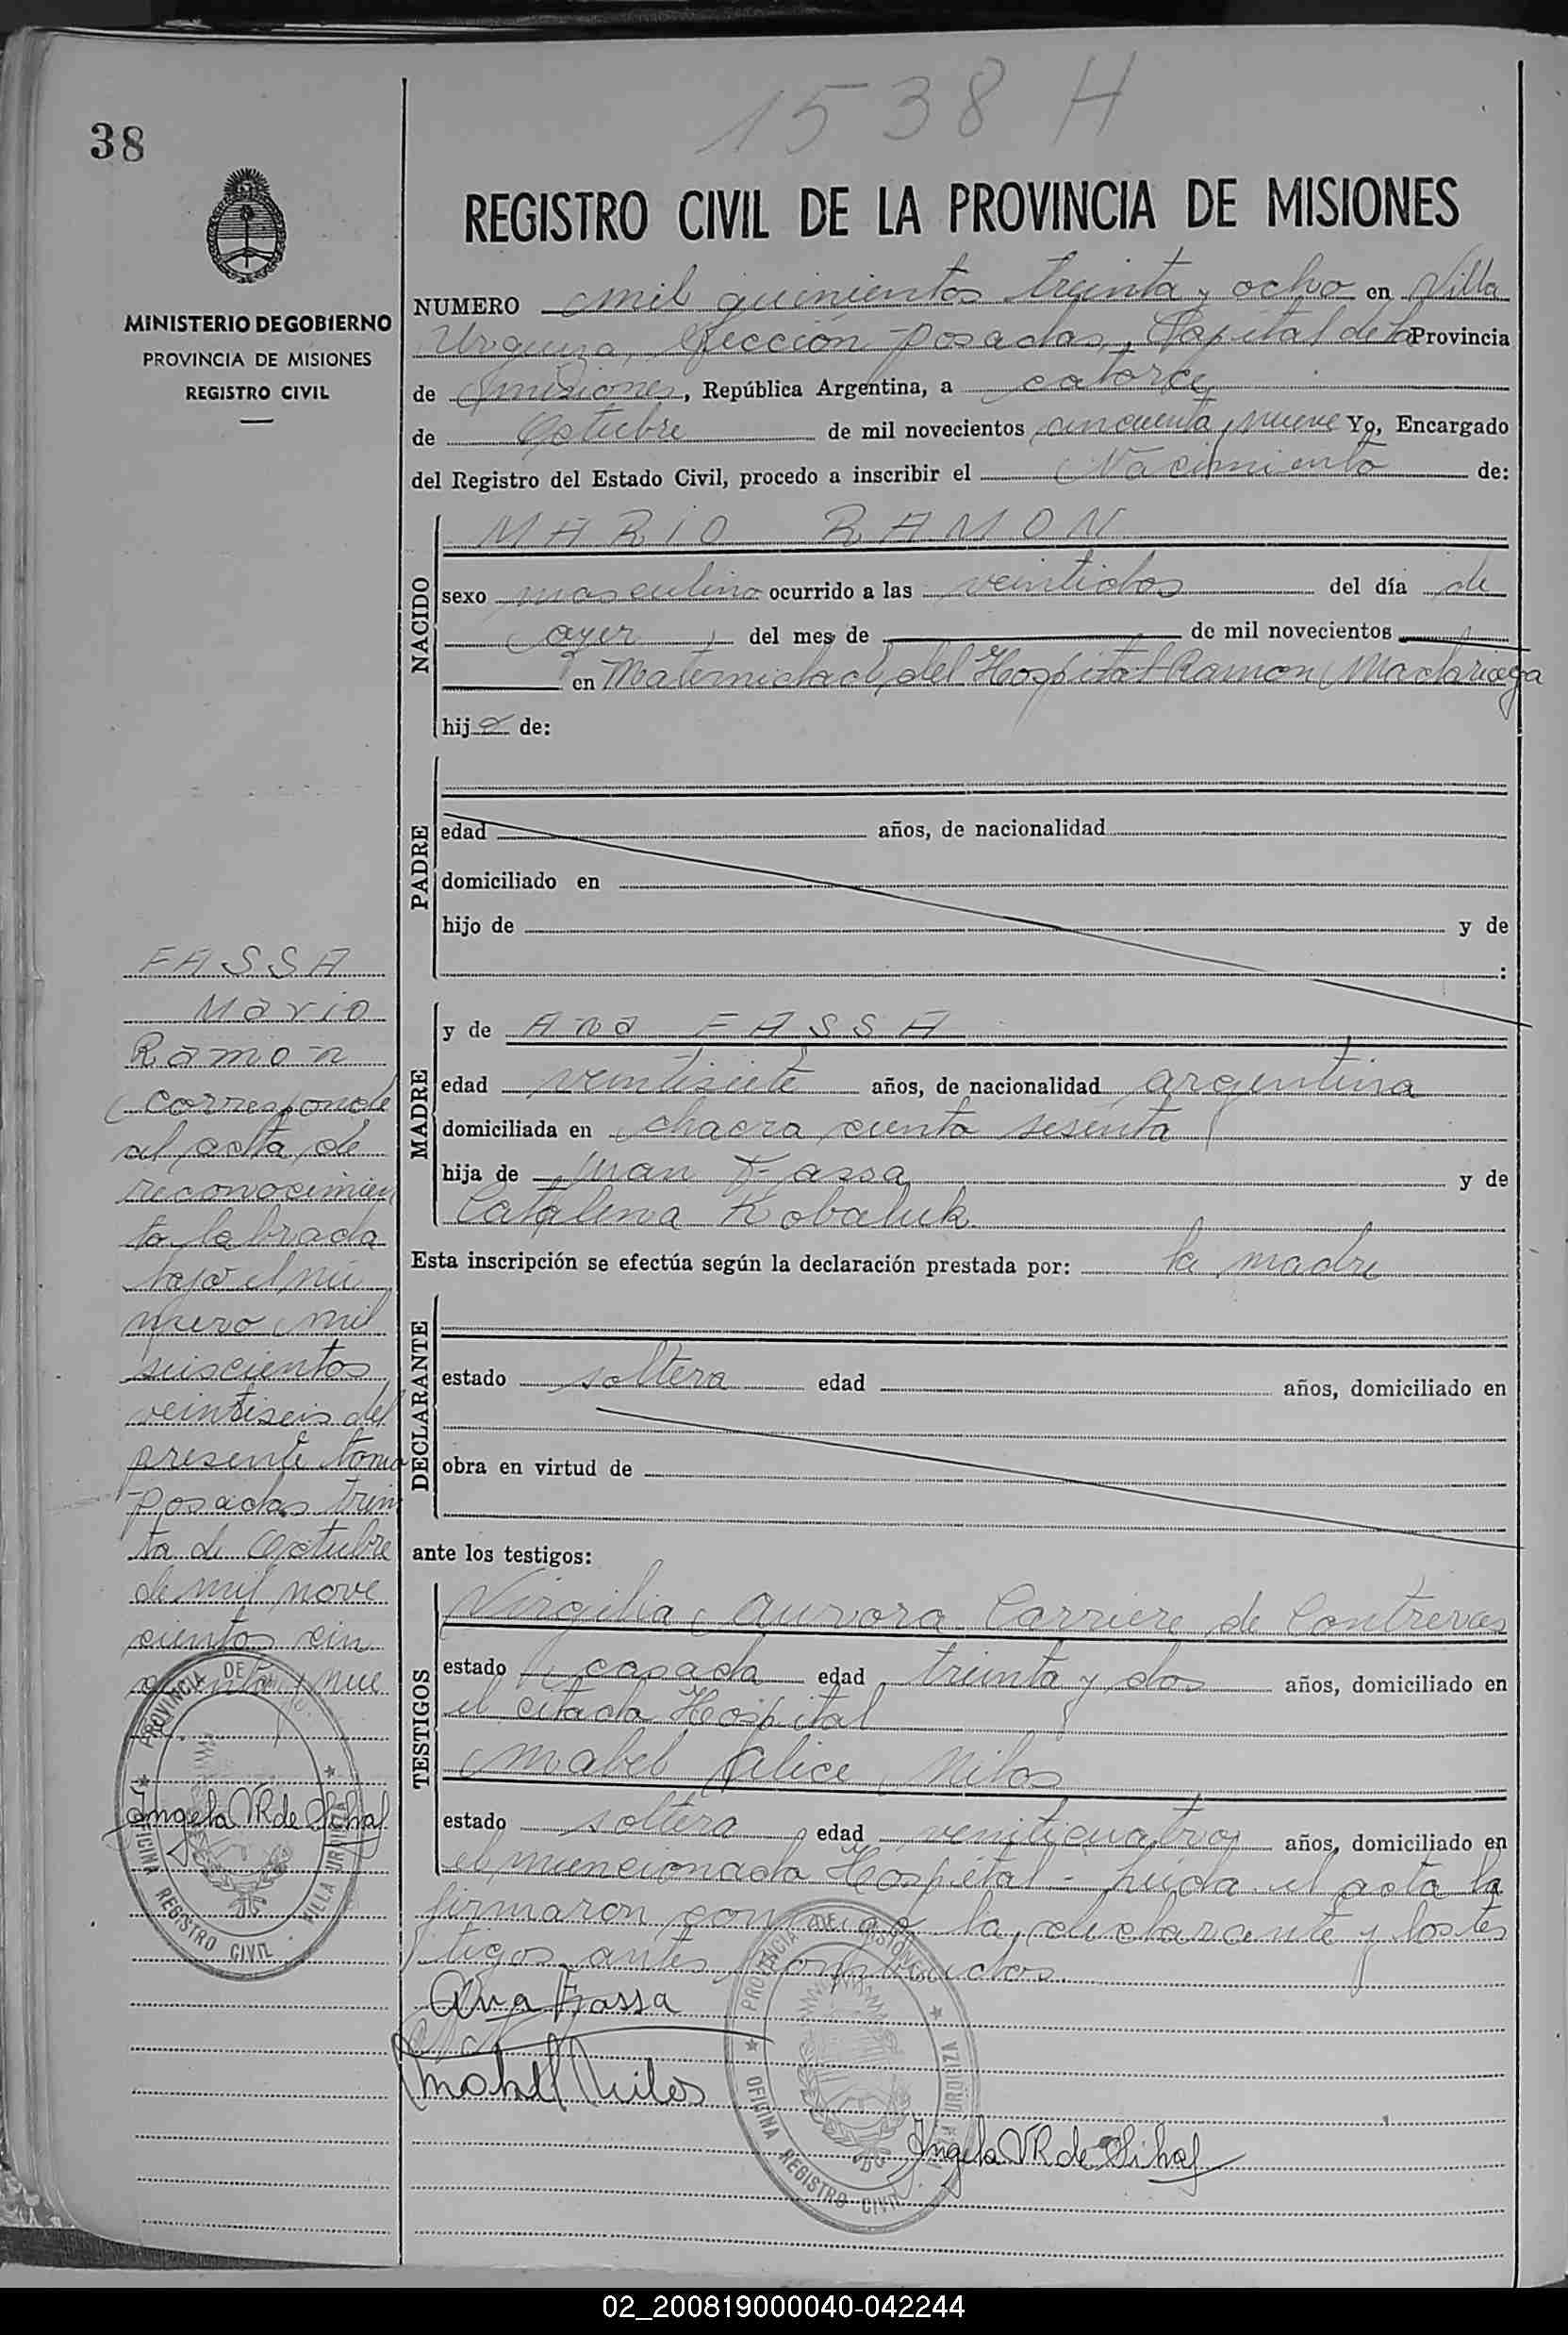 1538 H
38
REGISTRO CIVIL DE LA PROVINCIA DE MISIONES
MINISTERIO DE GOBIERNO
PROVINCIA DE MISIONES
REGISTRO CIVIL
NUMERO mil quinientos treinta y ocho en Villa
Urquiza, Sección Posadas, Capital de la Provincia
de Misiones, República Argentina, a catorce
de Octubre de mil novecientos cincuenta y nueve Yo, Encargado
del Registro del Estado Civil, procedo a inscribir el Nacimiento de:
NACIDO
MARIO RAMON
sexo masculino ocurrido a las veintidos del día de
ayer del mes de de mil novecientos
en Maternidad del Hospital Ramon Madariaga
hijo de:
PADRE
edad años, de nacionalidad
domiciliado en
hijo de y de
:
MADRE
y de Ana FASSA
edad veintisiete años, de nacionalidad argentina
domiciliada en chacra ciento sesenta
hija de Juan Fassa y de
Catalina Kobaluk
Esta inscripción se efectúa según la declaración prestada por: la madre
DECLARANTE
estado soltera edad años, domiciliado en
obra en virtud de
ante los testigos:
TESTIGOS
Virgilia Aurora Carriere de Contreras
estado casada edad treinta y dos años, domiciliado en
el citado Hospital
Mabel Alice Milos
estado soltera edad venticuatro años, domiciliado en
el mencionado Hospital - Leida el acta la
firmaron conmigo la declarante y los tes
tigos antes
Ana Fassa
Mabel Milos
Angela VR de
PROVINCIA DE MISIONES
OFICINA REGISTRO CIVIL
VILLA URQUIZA
FASSA
Mario
Ramon
corresponde
al acta de
reconocimien
to labrada
bajo el nú
mero mil
seiscientos
veintiseis del
presente tomo
Posadas trein
ta de Octubre
de mil nove
cientos cin
cuenta y nue
ve.
Angela VR de
PROVINCIA DE
OFICINA REGISTRO CIVIL
VILLA URQUIZA
02_200819000040-042244